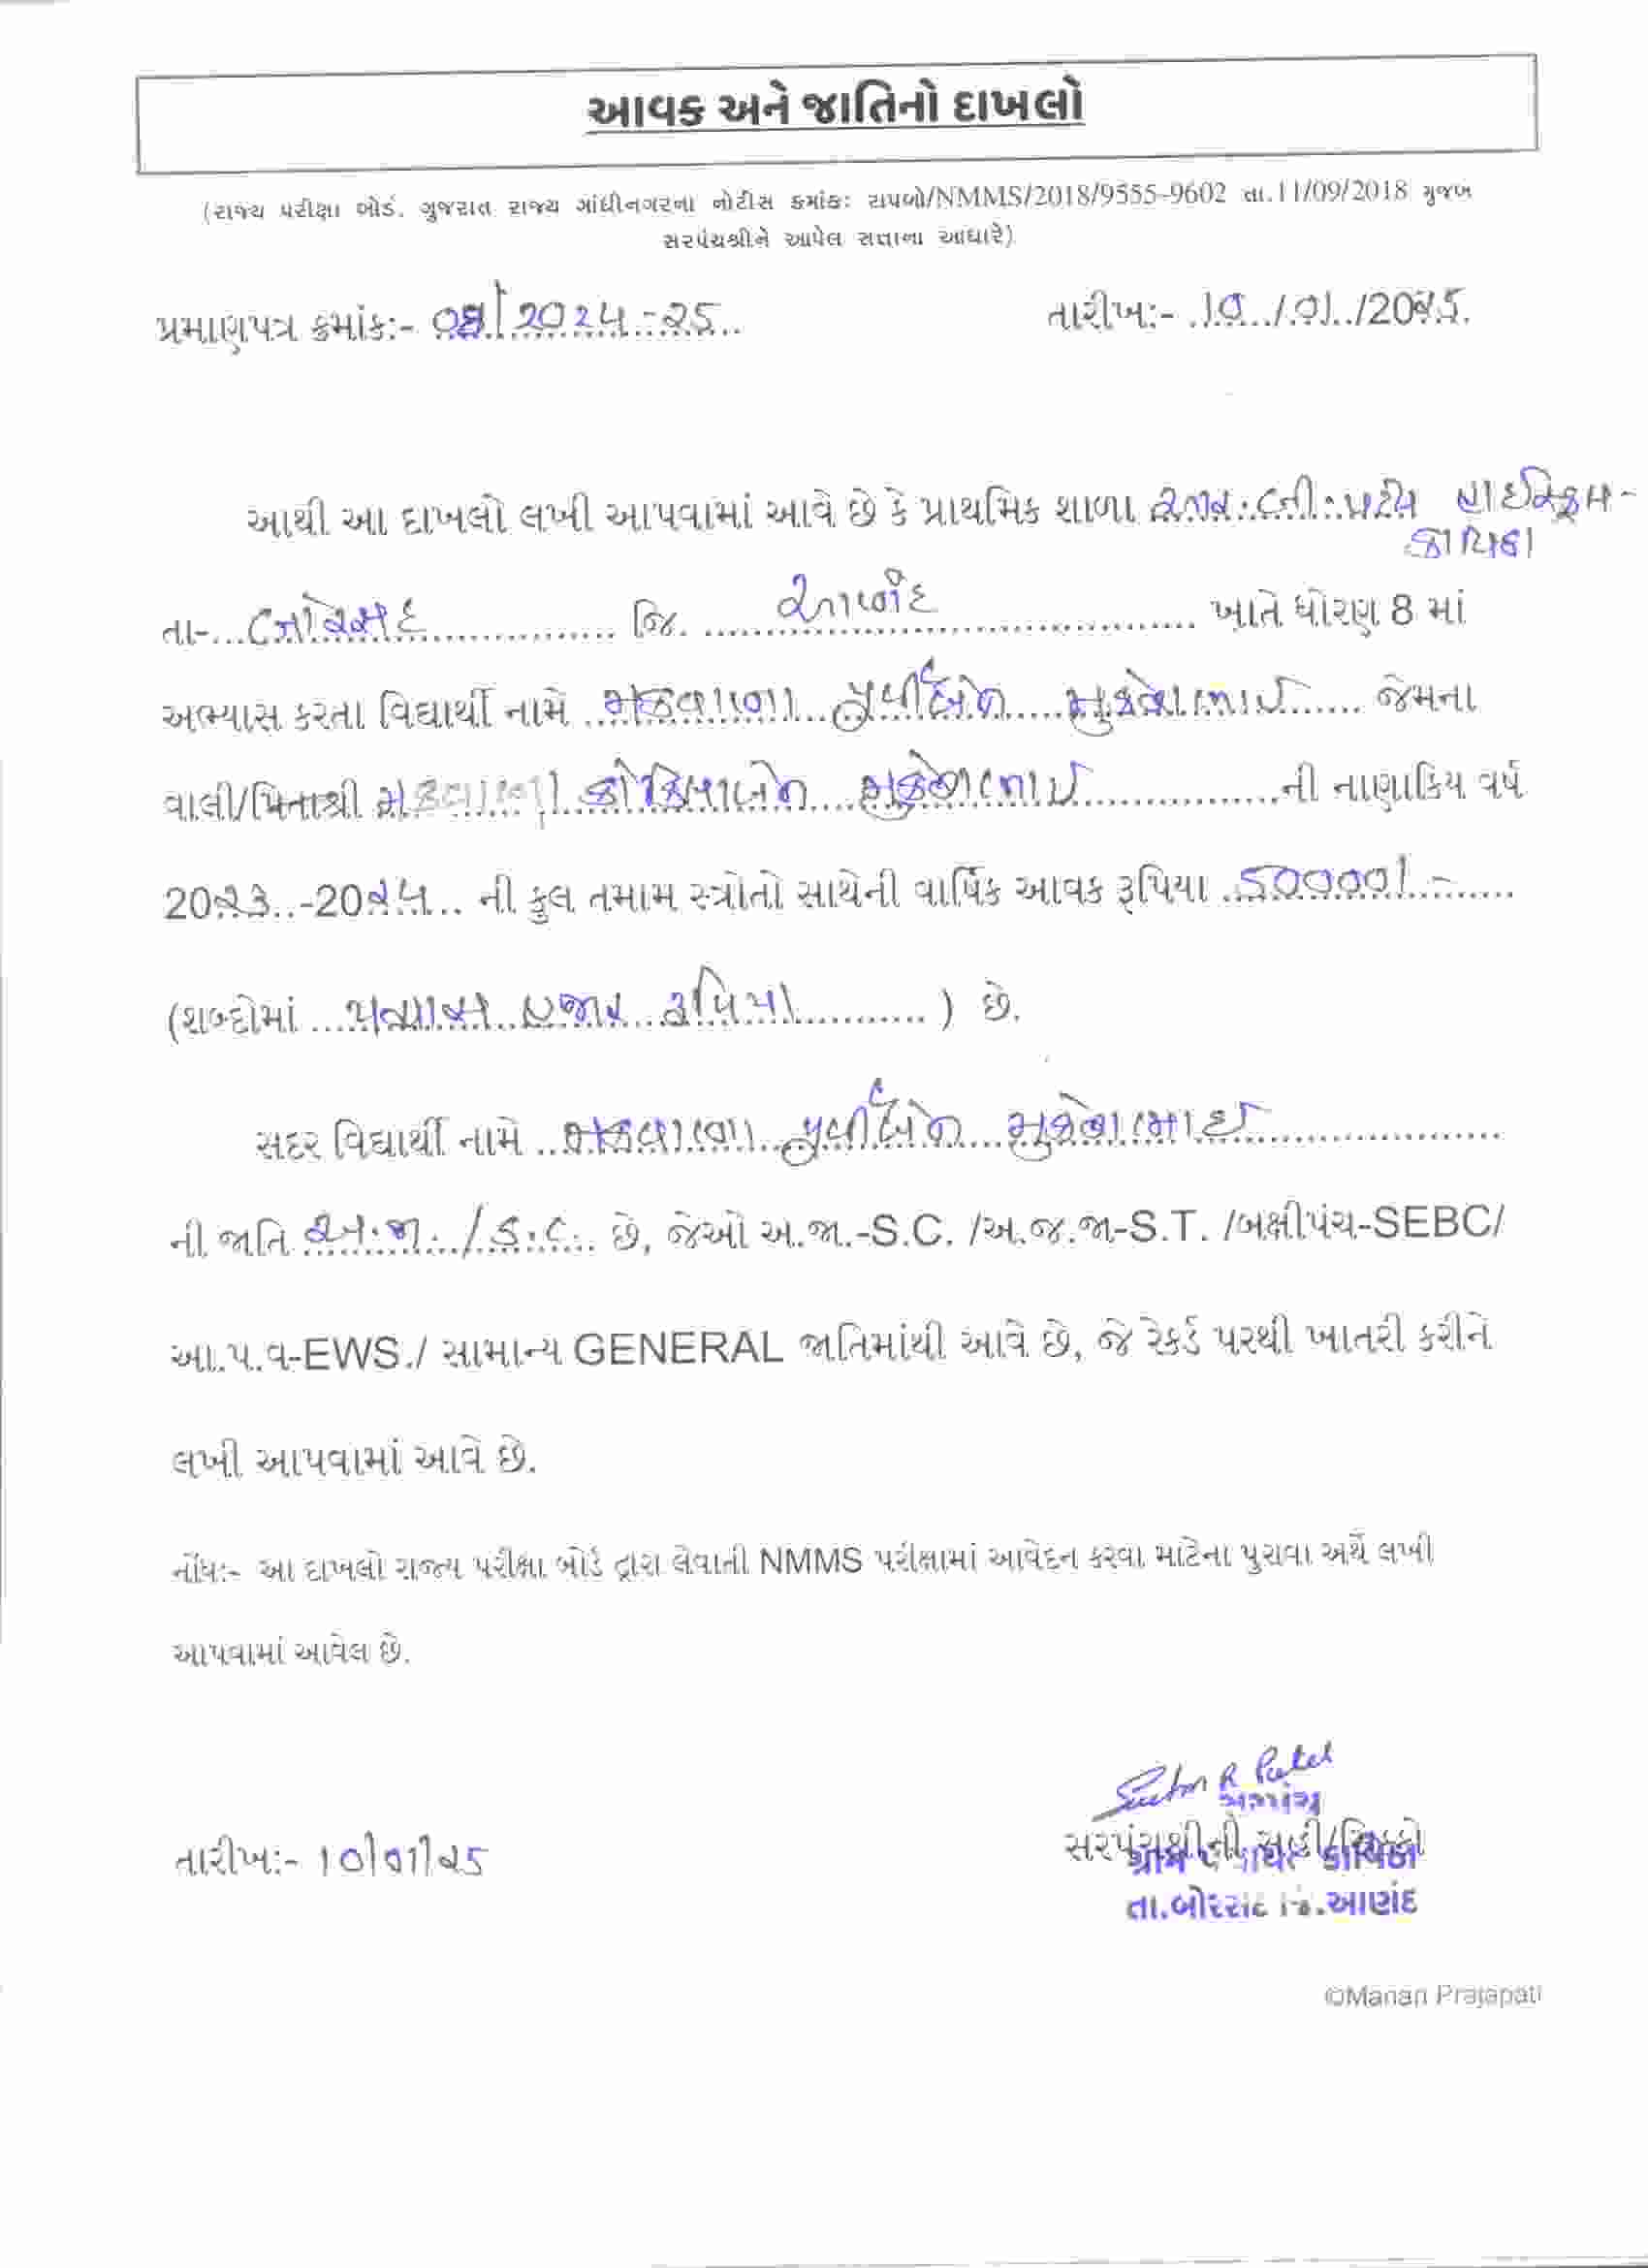 આવક અને જાતિનો દાખલો
(રાજ્ય પરીક્ષા બોર્ડ, ગુજરાત રાજ્ય ગાંધીનગરના નોટીસ ક્રમાંકઃ રાપબો/NMMS/2018/9555-9602 તા.11/09/2018 મુજબ
સરપંચશ્રીને આપેલ સત્તાના આધારે)
પ્રમાણપત્ર ક્રમાંક:- /2024-25 તારીખ:- 10/01/2025
આથી આ દાખલો લખી આપવામાં આવે છે કે પ્રાથમિક શાળા આર.સી.પટેલ હાઈસ્કૂલ-
તા-...બોરસદ જિ. આણંદ ખાતે ધોરણ 8 માં
અભ્યાસ કરતા વિદ્યાર્થી નામે મકવાણા મુકેશભાઈ જેમના
વાલી/પિતાશ્રી મકવાણા કોકિલાબેન મુકેશભાઈ ની નાણાકિય વર્ષ
2023-2024 ની કુલ તમામ સ્ત્રોતો સાથેની વાર્ષિક આવક રૂપિયા 50000/-
(શબ્દોમાં પચાસ હજાર રૂપિયા ) છે.
સદર વિદ્યાર્થી નામે મકવાણા મુકેશભાઈ
ની જાતિ અ.જા. /S.C. છે, જેઓ અ.જા.-S.C. /અ.જ.જા-S.T. /બક્ષીપંચ-SEBC/
આ.પ.વ-EWS./ સામાન્ય GENERAL જાતિમાંથી આવે છે, જે રેકર્ડ પરથી ખાતરી કરીને
લખી આપવામાં આવે છે.
નોંધ:- આ દાખલો રાજ્ય પરીક્ષા બોર્ડ દ્વારા લેવાતી NMMS પરીક્ષામાં આવેદન કરવા માટેના પુરાવા અર્થે લખી
આપવામાં આવેલ છે.
R Patel
સરપંચ
તારીખ:- 10/01/25 સરપંચશ્રીની સહી/સિક્કો
ગ્રામ પંચાયત કાવિઠા
તા.બોરસદ જિ.આણંદ
©Manan Prajapati